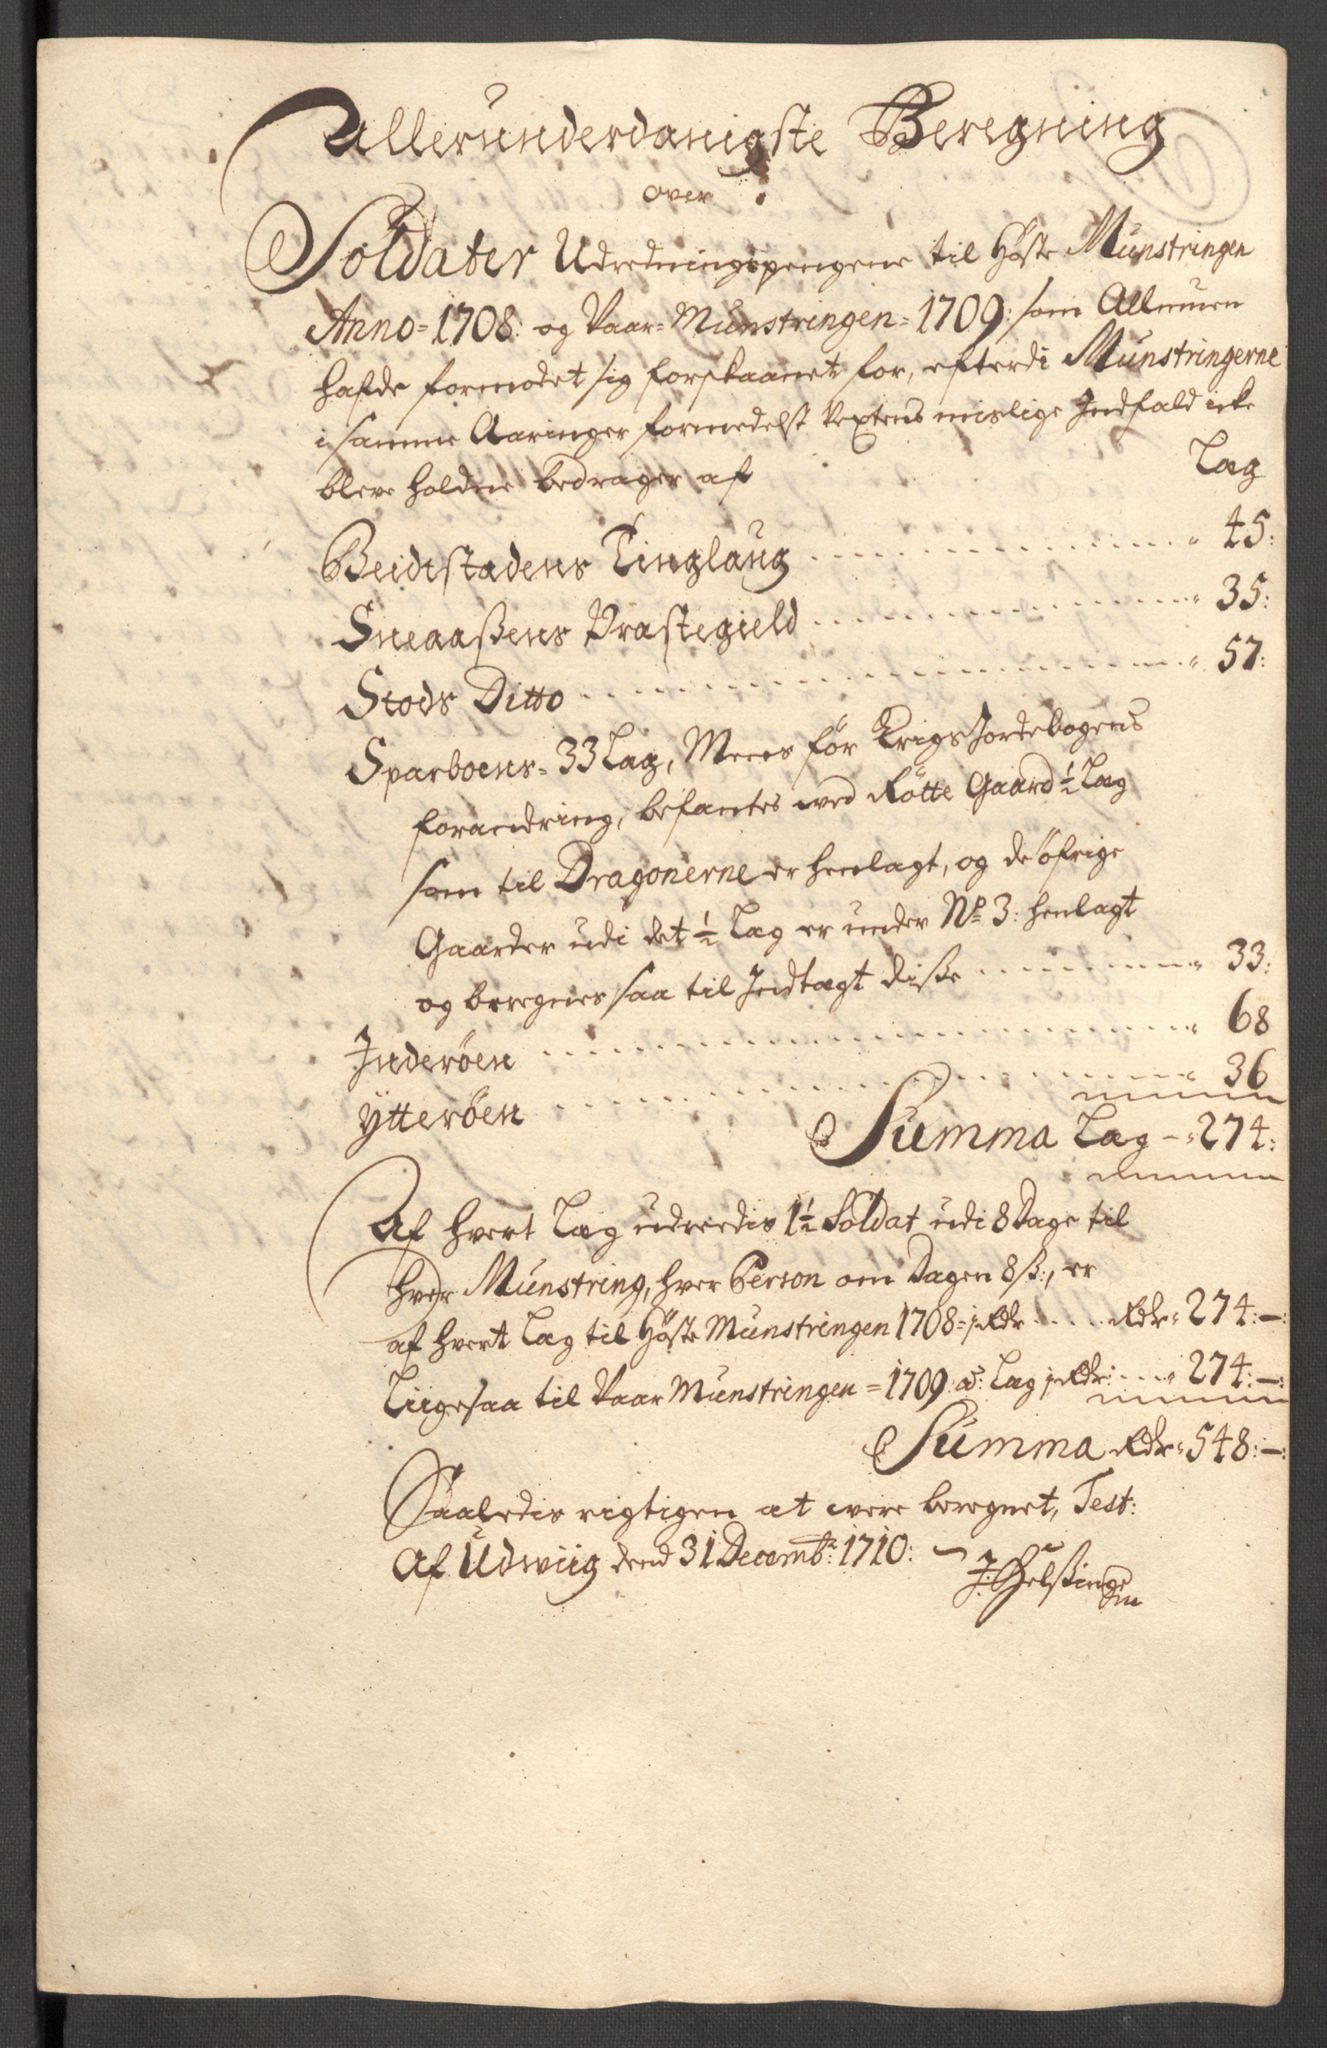 Allerunderdanigste Beregning
over
Soldater Udredningspengene til Høste Munstringen
Anno = 1708: og Vaar = Munstringen = 1709: som Allmuen
hafde formodet sig forskaanet for, efterdi Munstringerne
i samme Aaringer formedelst Vextens mislige Indfald icke
bleve holdne bedrager af Læg
Beidestadens Tinglaug 45:
Sneaaßens Præstegield 35:
Stods Ditto 57:
Sparboens = 33 Læg, Meere før Krigs Jordebogens
forandring, befantes ved Røtte Gaard ½ Læg
som til Dragonerne er henlagt, og de øfrige
Gaarder udi det ½ Læg er under No 3: henlagt
og beregnes saa til Indtægt diße 33:
Inderøen 68
Ytterøen 36
Summa Læg - 274:
Af hvert Læg udreedis 1½ Soldat udi 8 Dage til
hver Munstring, hver Person om Dagen 8 ß:, er
af hvert Læg til Høste Munstringen 1708 = 1 Rdr Rdr 274: -:
Liigesaa til Vaar Munstringen = 1709: a: Læg 1 Rdr: 274: -:
Summa Rdr 548: -:
Saaledis rigtigen at være beregnet, Test:
Af Udwiig dend 31 Decembr: 1710: